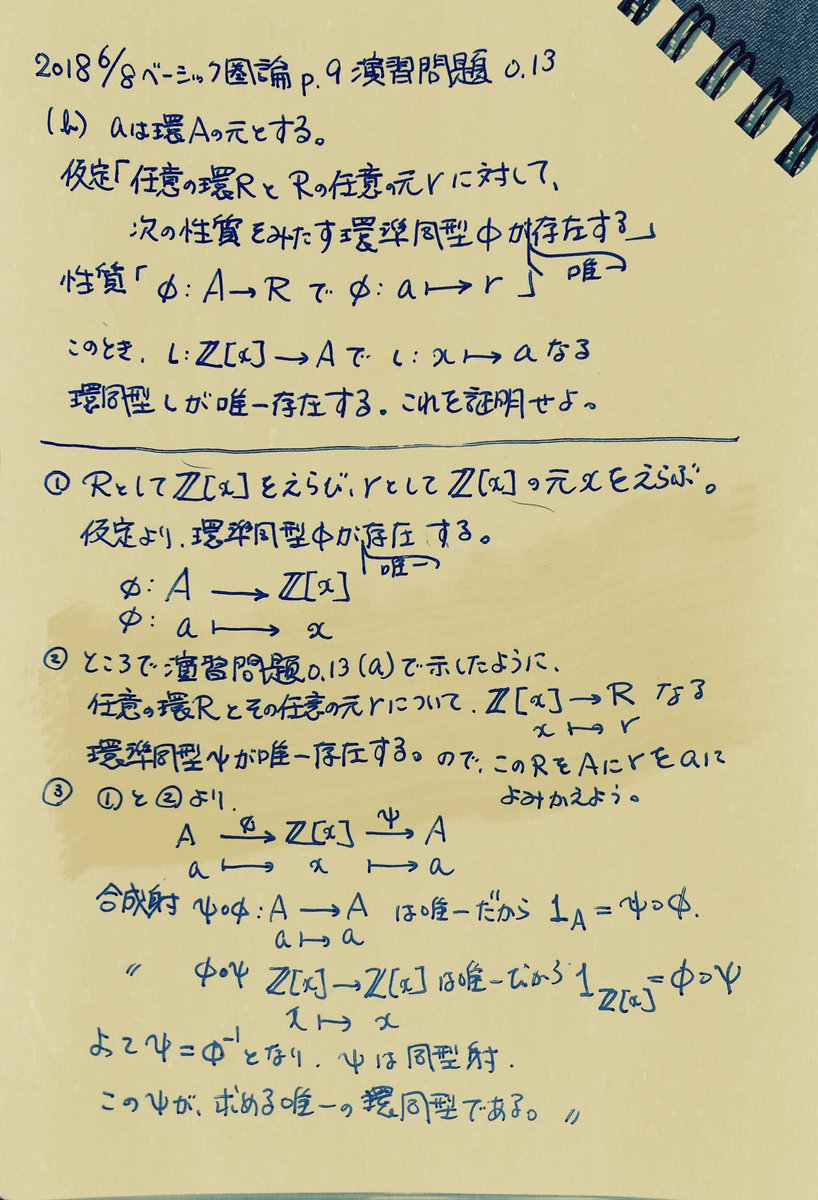 2018 6/8 ベーシック圏論 p.9 演習問題 0.13
(b) aは環Aの元とする。
仮定「任意の環RとRの任意の元rに対して、
次の性質をみたす環準同型φが存在する」
唯一
性質「φ: A→R で φ: a↦r」
このとき、ι: ℤ[x]→A で ι: x↦a なる
環同型ιが唯一存在する。これを証明せよ。
① Rとしてℤ[x]をえらび、rとしてℤ[x]の元xをえらぶ。
仮定より、環準同型φが存在する。
唯一
φ: A → ℤ[x]
φ: a ↦ x
② ところで演習問題0.13(a)で示したように、
任意の環Rとその任意の元rについて、ℤ[x]→R なる
x ↦ r
環準同型ψが唯一存在する。ので、このRをAにrをaに
よみかえよう。
③ ①と②より、
A →φ ℤ[x] →ψ A
a ↦ x ↦ a
合成射 ψ∘φ: A→A は唯一だから 1_A = ψ∘φ.
a↦a
〃 φ∘ψ ℤ[x]→ℤ[x] は唯一だから 1_ℤ[x] = φ∘ψ
x ↦ x
よってψ=φ⁻¹となり、ψは同型射.
このψが、求める唯一の環同型である。〃